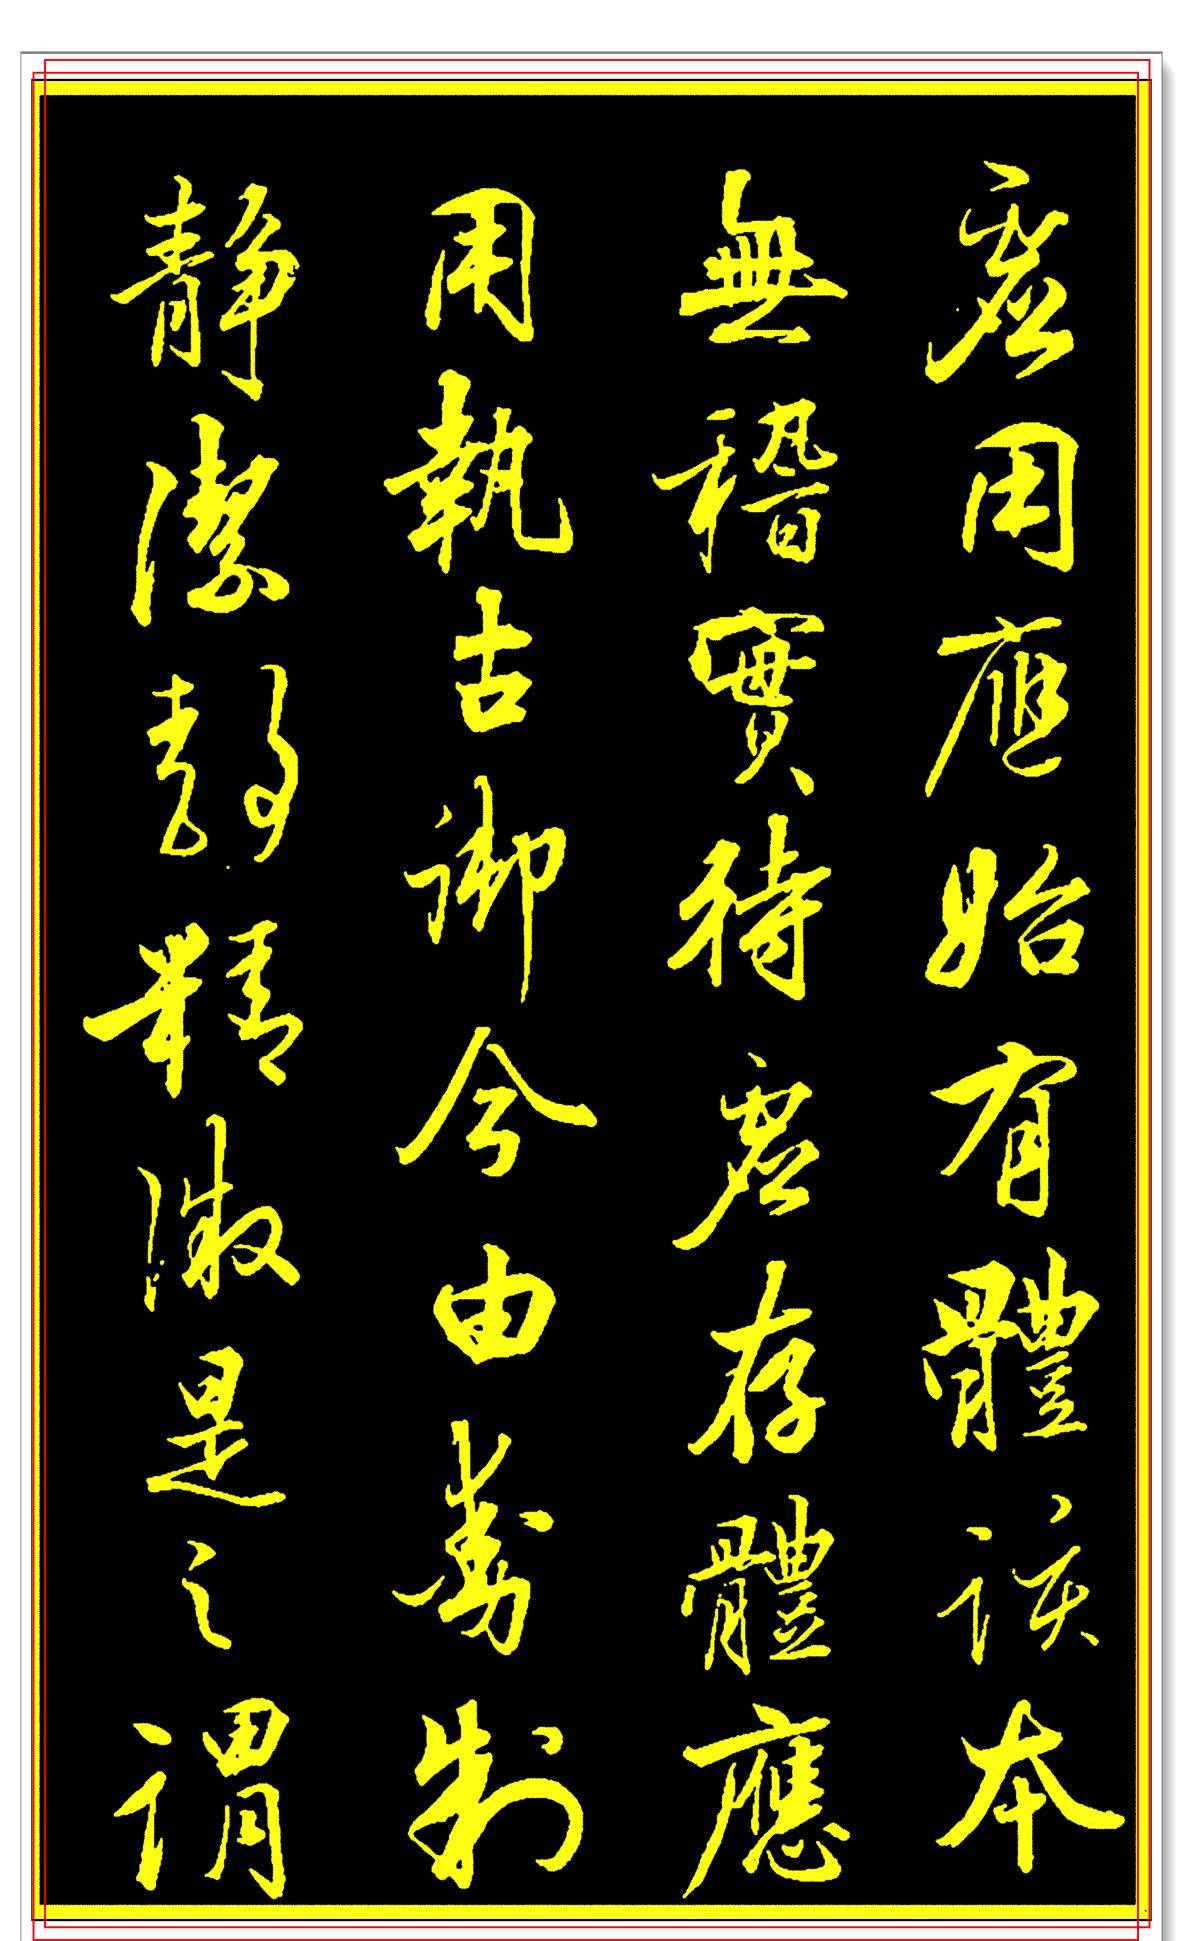 虚用應始有體該本
無稽實待虚存體應
用執古御今由萬制
静潔静精微是之謂